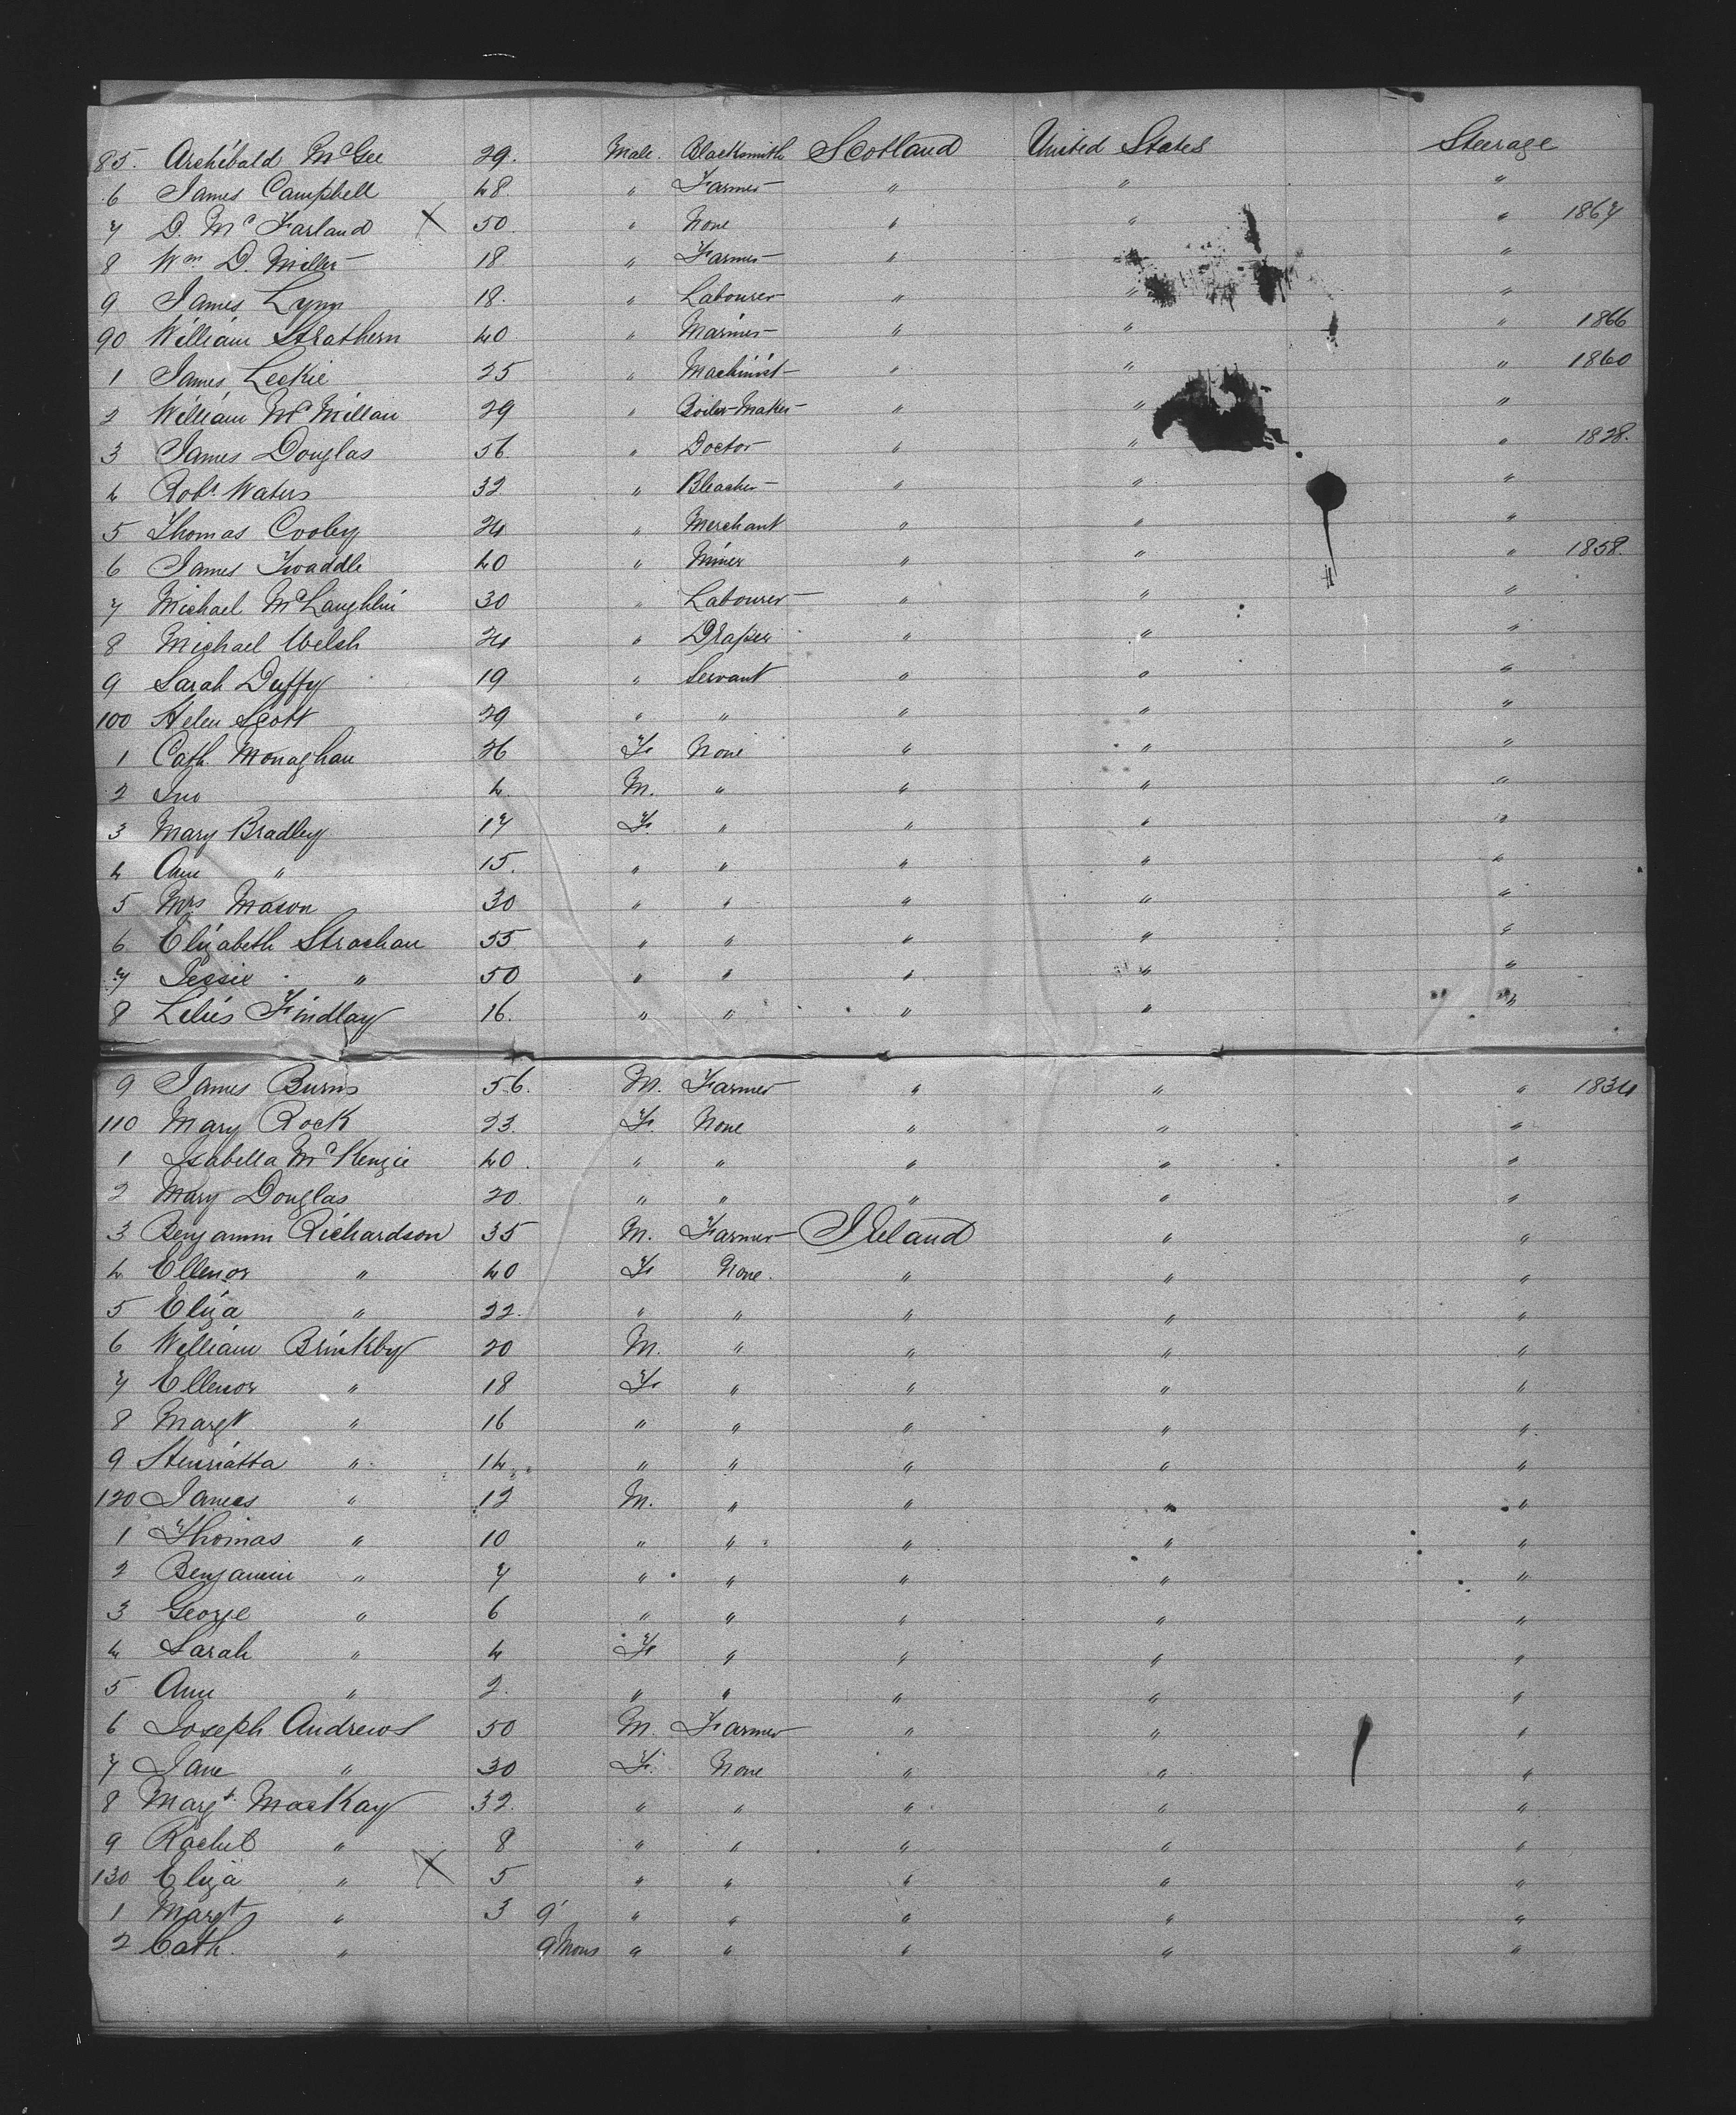 85. Archibald McGee 29. Male. Blacksmith Scotland United States Steerage
6 James Campbell 48. " Farmer " " "
7 D. Mc Farland X 50. " None " " " 1867
8 Wm. D. Miller 18 " Farmer " "
9 James Lynn 18. " Labourer " " "
90 William Strathern 40 " Mariner " " " 1866
1 James Leckie 25 " Machinist " " " 1860
2 William McMillan 29 " Boiler-Maker " " "
3 James Douglas 56 " Doctor " " " 1828.
4 Robt Waters 32 " Bleacher " " "
5 Thomas Cooley 24 " Merchant " " "
6 James Twaddle 40 " Miner " " " 1858.
7 Michael McLaughlin 30 " Labourer " " "
8 Michael Welsh 24 " Draper " " "
9 Sarah Duffy 19 " Servant " " "
100 Helen Scott 29 " " " " "
1 Cath. Monaghan 26 F. None " " "
2 Jno 4. M. " " " "
3 Mary Bradley 17 F. " " " "
4 Ann " 15. " " " " "
5 Mrs Mason 30 " " " " "
6 Elizabeth Strachan 55 " " " " "
7 Jessie " 50 " " " " "
8 Lilies Findlay 16. " " " " "
9 James Burns 56. M. Farmer " " " 1834
110 Mary Rock 23. F. None " " "
1 Isabella McKenzie 40. " " " " "
2 Mary Douglas 20. " " " " "
3 Benjamin Richardson 35 M. Farmer Ireland " "
4 Ellenor " 40 F. None. " " "
5 Eliza " 22. " " " " "
6 William Brinkby 20 M. " " " "
7 Ellenor " 18 F. " " " "
8 Margt " 16 " " " " "
9 Henriatta " 14 " " " " "
120 James " 12 M. " " " "
1 Thomas " 10 " " " " "
2 Benjamin " 7 " " " " "
3 George " 6 " " " " "
4 Sarah " 4 F. " " " "
5 Ann " 2. " " " " "
6 Joseph Andrews 50 M. Farmer " " "
7 Jane " 30 F. None " " "
8 Margt MacKay 32. " " " " "
9 Rachel " 8 " " " " "
130 Eliza " X 5 " " " " "
1 Margt " 3 9 " " " " "
2 Cath. " 9 Mons " " " " "